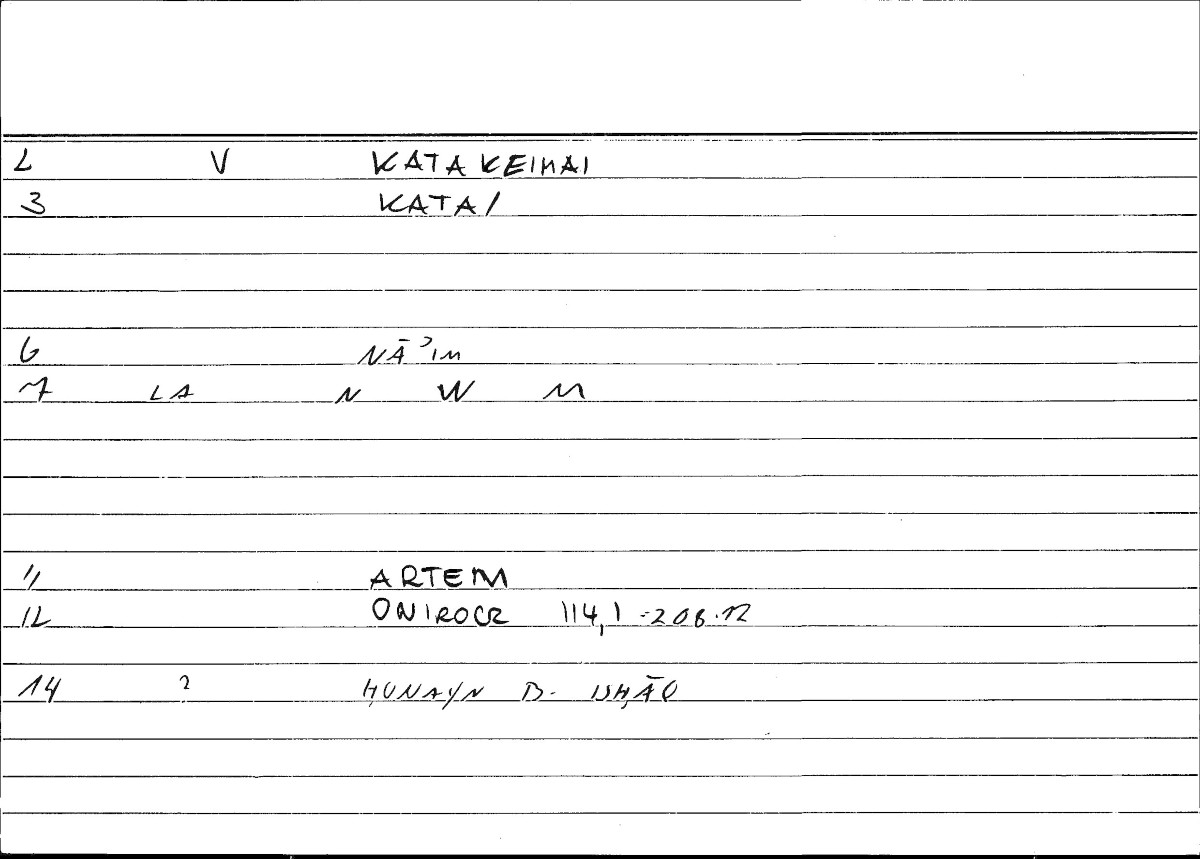 2 V KATAKEIMAI
3 KATA/
6 NĀʾIM
7 LA N W M
11 ARTEM
12 ONIROCR 114,1-208.12
14 2 ḤUNAYN B. ISḤĀQ